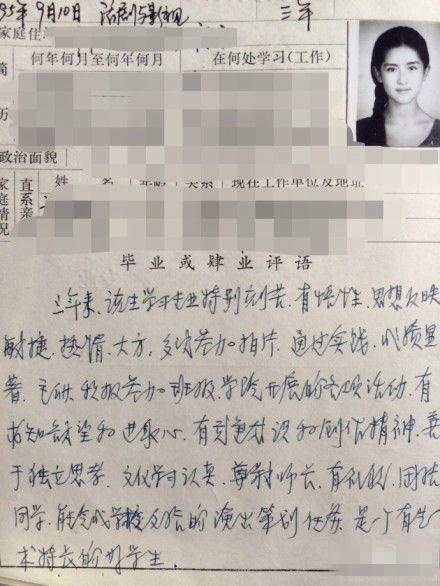 95年9月10日 话剧与影视 三年
家庭住
何年何月至何年何月 在何处学习(工作)
简
历
政治面貌
家庭情况 直系亲 姓 名 年龄 关系 现在工作单位及地址
毕业或肄业评语
三年来,该生学习专业特别刻苦,有悟性,思想反映
敏捷,热情,大方,多次参加拍片,通过实践,成绩显
著,主动积极参加班级,学院开展的各项活动,有
求知欲望和进取心,有刻意意识和创作精神,善
于独立思考,文化学习认真,尊敬师长,有礼貌,团结
同学,能完成学校交给的演出策划任务,是一个有艺
术特长的好学生.